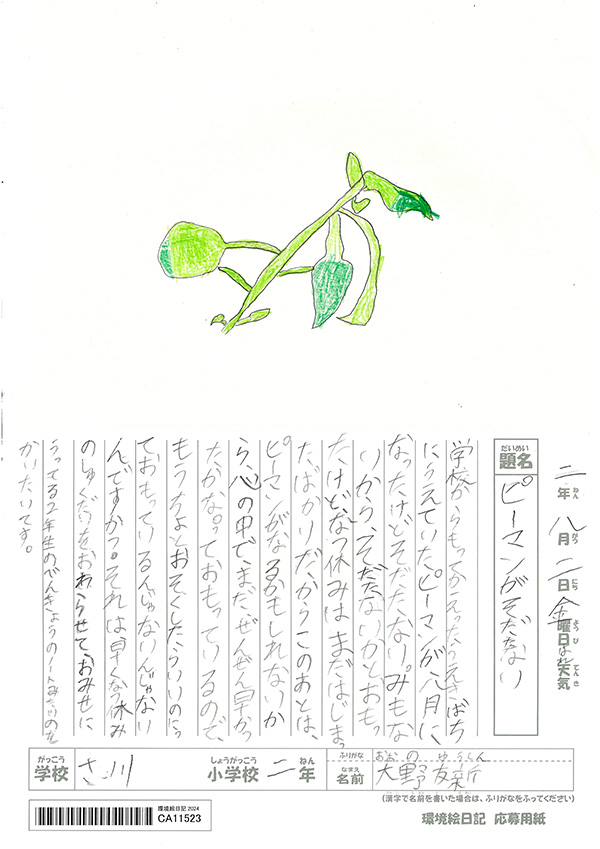 二年八月二日金曜日はれ天気
ねん がつ にち ようび てんき
だいめい
題名
ピーマンがそだたない
学校からもってかえったうえきばち
にうえていたピーマンが八月に
なったけどそだたない。みもな
いから、そだたないかとおもっ
たけどなつ休みはまだはじまっ
たばかりだからこのあとは、
ピーマンがなるかもしれないか
ら、心の中で、まだ、ぜんぜん早かっ
たかな。っておもっているので、
もうちょとおそくしたらいいのにっ
ておもっているんじゃないんじゃない
んですかっ。それは、早くなつ休み
のしゅくだいをおわらせておみせに
うってる2年生のべんきょうのノートみたいのを
かいたいです。
がっこう
学校
さい川
しょうがっこう
小学校
二
ねん
年
ふりがな
なまえ
名前
おおの
大野友新
(漢字で名前を書いた場合は、ふりがなをふってください)
環境絵日記 2024
CA11523
環境絵日記 応募用紙